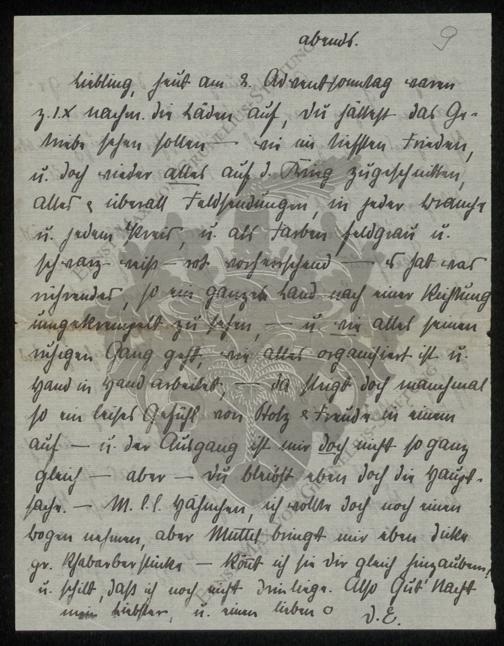 abends. 9
Liebling, heut am 2. Adventsonntag waren
z. 1.x nachm. die Läden auf, du hättest das Ge-
triebe sehen sollen — wie im tiefsten Frieden,
u. doch wieder alles auf d. Krieg zugeschnitten,
alles & überall Feldsendungen, in jeder Branche
u. jedem Kreis, u. als Farben feldgrau u.
schwarz-weiß-rot vorherrschend — es hat was
rührendes, so ein ganzes Land nach einer Richtung
umgekrempelt zu sehen, — u. wie alles seinen
ruhigen Gang geht, wie alles organisiert ist u.
Hand in Hand arbeitet, — da steigt doch manchmal
so ein leises Gefühl von Stolz & Freude in einem
auf — u. der Ausgang ist mir doch nicht so ganz
gleich — aber — du bleibst eben doch die Haupt-
sache. — M. l. l. Hähnchen, ich wollte doch noch einen
bogen nehmen, aber Mutti bringt mir eben dicke
gr. Rhabarberstücke — könnt ich sie dir gleich hinzaubern!
u. schilt, daß ich noch nicht drin liege. Also Gut Nacht
mein Liebster, u. einen lieben o
D. E.